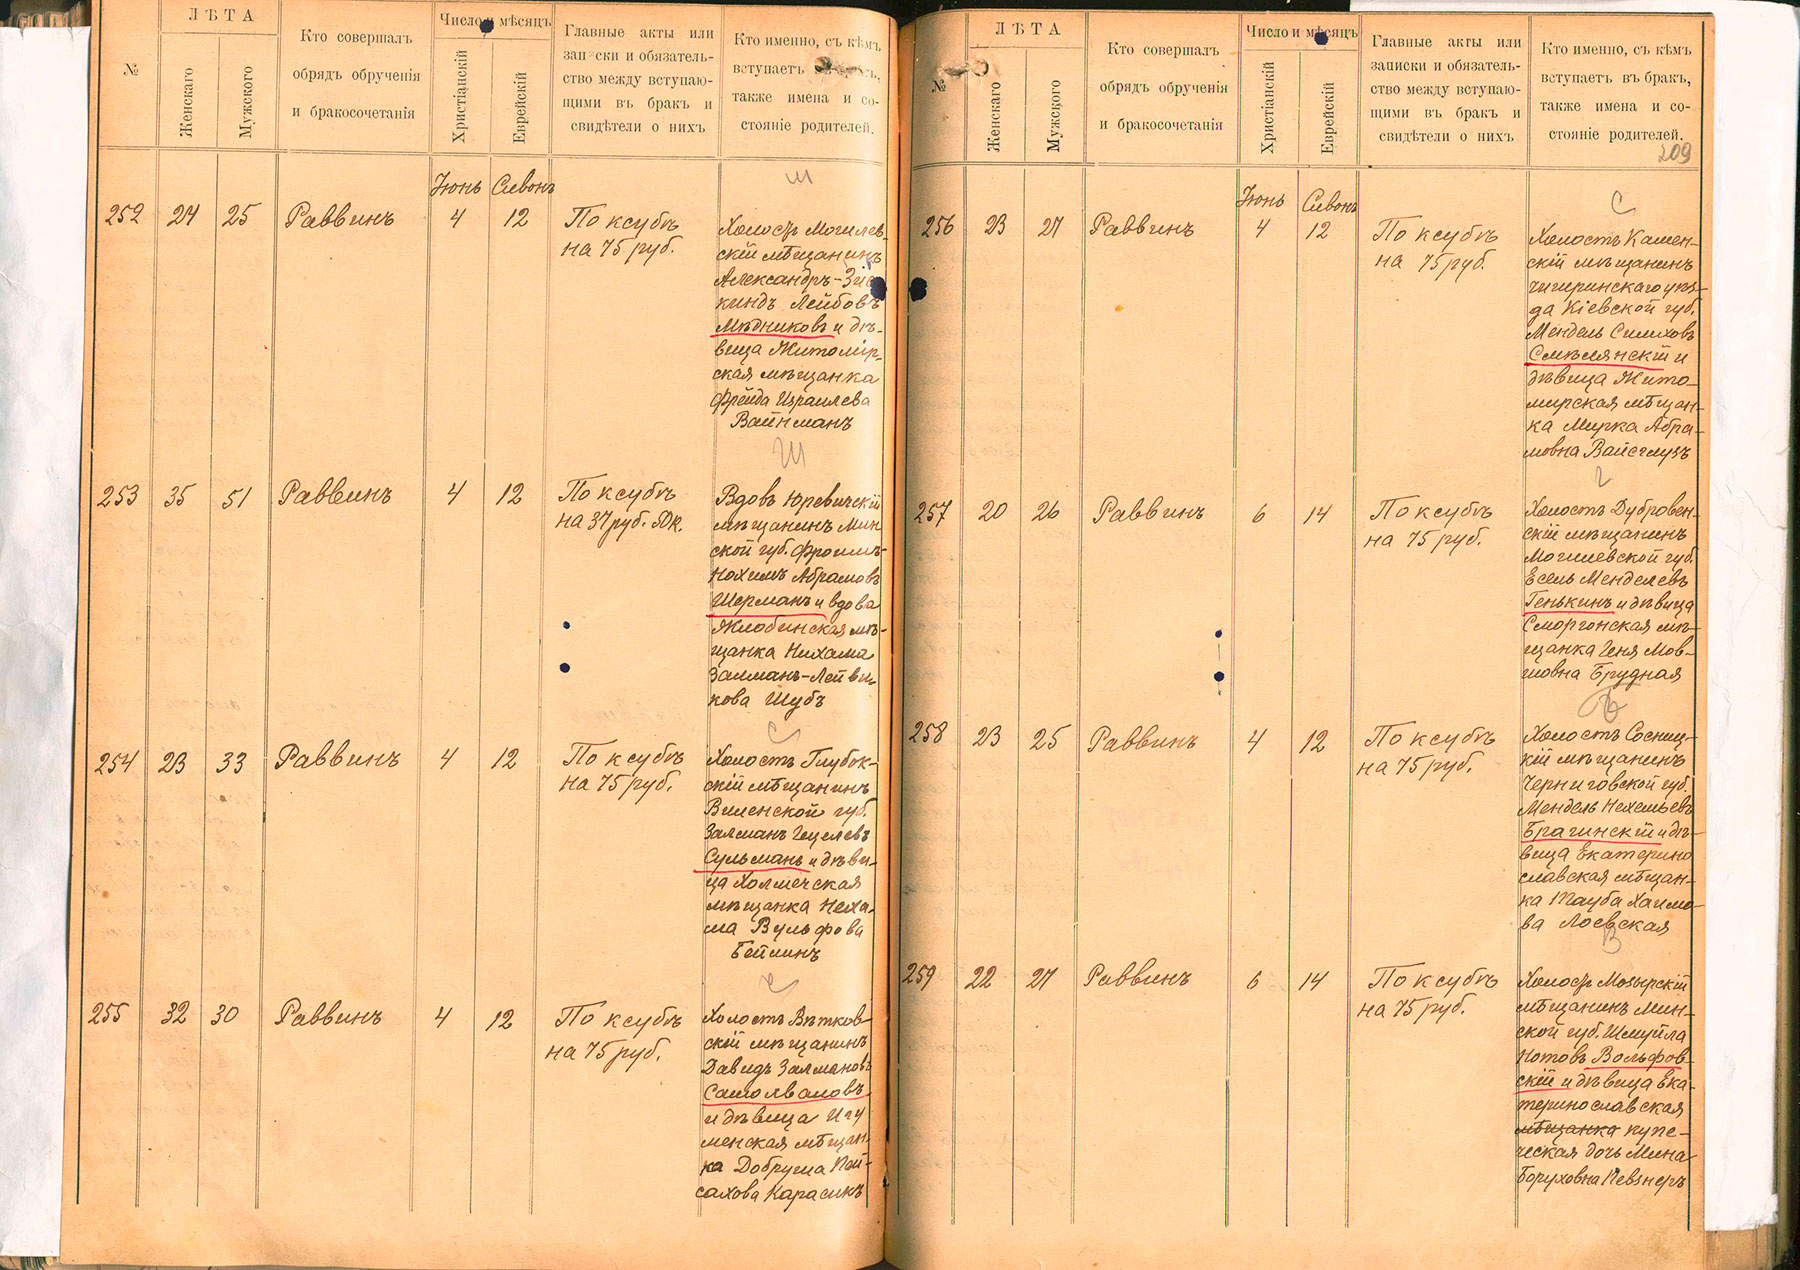 №
ЛѢТА
Женскаго
Мужского
Кто совершалъ
обрядъ обрученія
и бракосочетанія
Число и мѣсяцъ
Христіанскій
Еврейскій
Главные акты или
записки и обязатель-
ство между вступаю-
щими въ бракъ и
свидѣтели о нихъ
Кто именно, съ кѣмъ
вступаетъ въ бракъ,
также имена и со-
стояніе родителей.
Ш
Іюнь Сивонъ
252 24 25 Раввинъ 4 12 По ксубѣ
на 75 руб.
Холостъ Могилев-
скій мѣщанинъ
Александръ-Зис
киндъ Лейбовъ
Мѣдниковъ и дѣ-
вица Житомір-
ская мѣщанка
Фрейда Израилева
Вайнманъ
Ш
253 35 51 Раввинъ 4 12 По ксубѣ
на 37 руб. 50 к.
Вдовъ Юревичскій
мѣщанинъ Мин
ской губ. Фроимъ-
Нохимъ Абрамовъ
Шерманъ и вдова
Жлобинская мѣ-
щанка Нихама
Залманъ-Лейви-
кова Шубъ
С
254 23 33 Раввинъ 4 12 По ксубѣ
на 75 руб.
Холостъ Глубок-
скій мѣщанинъ
Виленской губ.
Залманъ Гецелевъ
Сульманъ и дѣви-
ца Холмечская
мѣщанка Неха-
ма Вульфова
Бейлинъ
С
255 32 30 Раввинъ 4 12 По ксубѣ
на 75 руб.
Холостъ Вѣтков-
скій мѣщанинъ
Давидъ Залмановъ
Самолвановъ
и дѣвица Игу
менская мѣщан-
ка Добруша Пей-
сахова Карасикъ
№
ЛѢТА
Женскаго
Мужского
Кто совершалъ
обрядъ обрученія
и бракосочетанія
Число и мѣсяцъ
Христіанскій
Еврейскій
Главные акты или
записки и обязатель-
ство между вступаю-
щими въ бракъ и
свидѣтели о нихъ
Кто именно, съ кѣмъ
вступаетъ въ бракъ,
также имена и со-
стояніе родителей.
209
С
Іюнь Сивонъ
256 23 27 Раввинъ 4 12 По ксубѣ
на 75 руб.
Холостъ Камен-
скій мѣщанинъ
Чигиринскаго уѣз-
да Кіевской губ.
Мендель Симховъ
Смѣлянскій и
дѣвица Жито-
мирская мѣщан-
ка Мирка Абра-
мовна Вайсглузъ
Г
257 20 26 Раввинъ 6 14 По ксубѣ
на 75 руб.
Холостъ Дубровен-
скій мѣщанинъ
Могилевской губ.
Есель Менделевъ
Генькинъ и дѣвица
Сморгонская мѣ-
щанка Геня Мов-
шовна Брудная
Б
258 23 25 Раввинъ 4 12 По ксубѣ
на 75 руб.
Холостъ Сосниц-
кій мѣщанинъ
Черниговской губ.
Мендель Нехемьевъ
Брагинскій и дѣ-
вица Екатерино
славская мѣщан-
ка Тауба Хаимо-
ва Лоевская
В
259 22 27 Раввинъ 6 14 По ксубѣ
на 75 руб.
Холостъ Мозырскій
мѣщанинъ Мин-
ской губ. Шмуйла
Нотовъ Вольфов-
скій и дѣвица Ека-
теринославская
мѣщанка купе-
ческая дочь Мина
Боруховна Певзнеръ